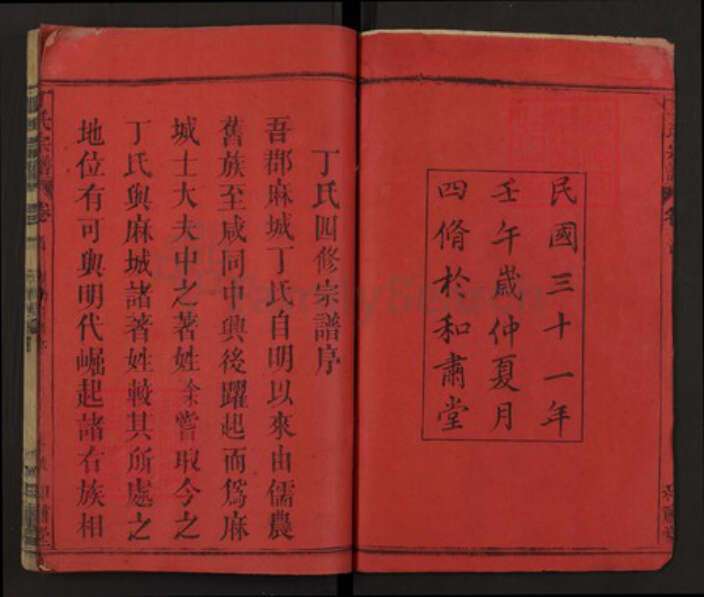 民國三十一年
壬午歲仲夏月
四脩於和肅堂
丁氏四修宗譜序
吾郡麻城丁氏自明以來由儒農
舊族至咸同中興後躍起而爲麻
城士大夫中之著姓余嘗取今之
丁氏與麻城諸著姓較其所處之
地位有可與明代崛起諸右族相
丁氏宗譜
卷